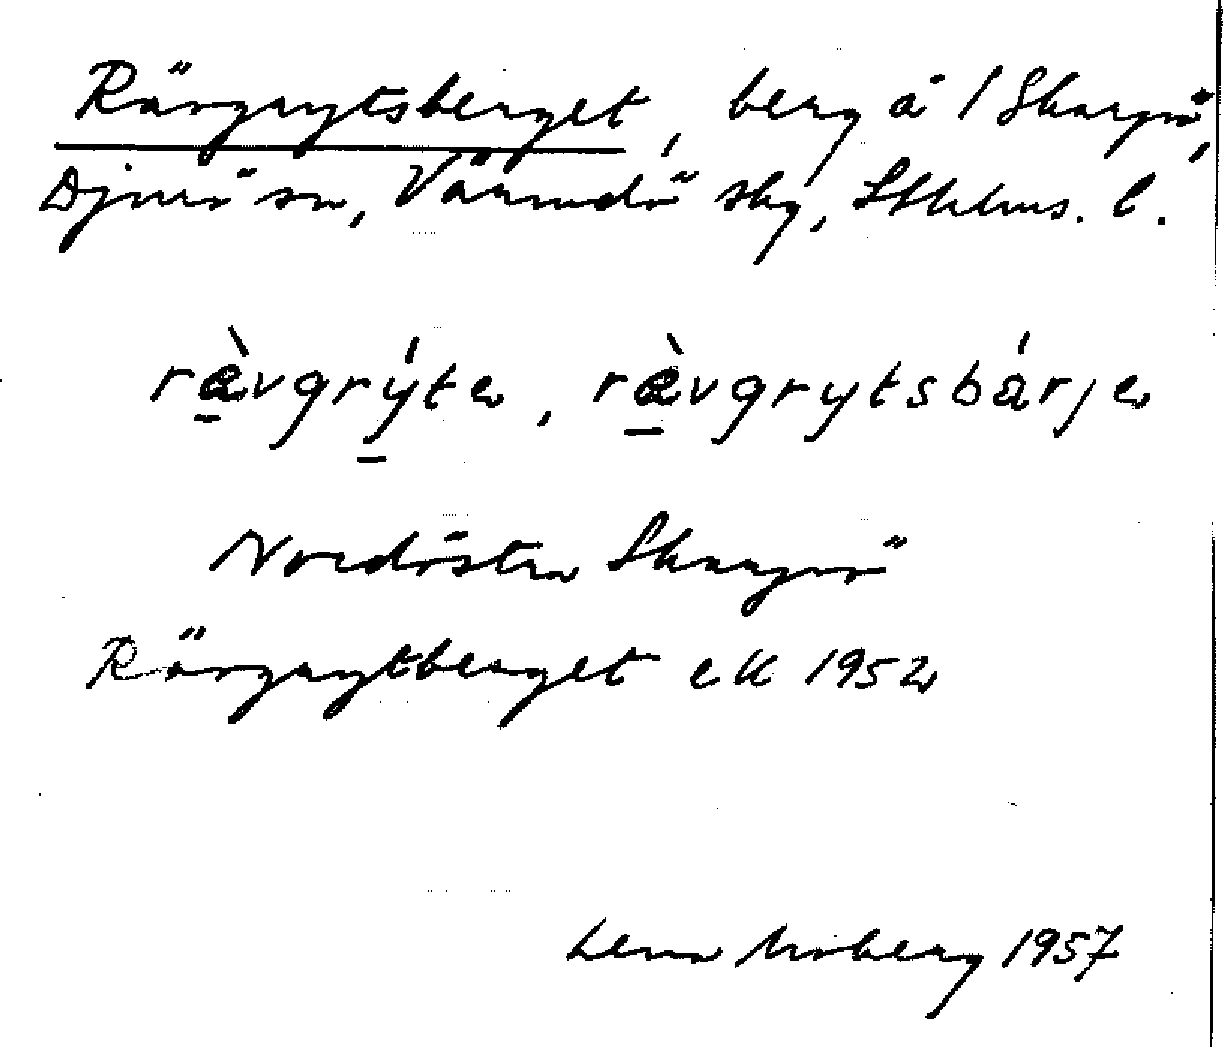 Rävgrytsberget, berg å / Skarpö,
Djurö sn, Värmdö skg, Sthlms. l.
ræ̀vgrýte, ræ̀vgrytsbárje
Nordöstra Skarpö
Rävgrytberget eK 1952
Lena Moberg 1957